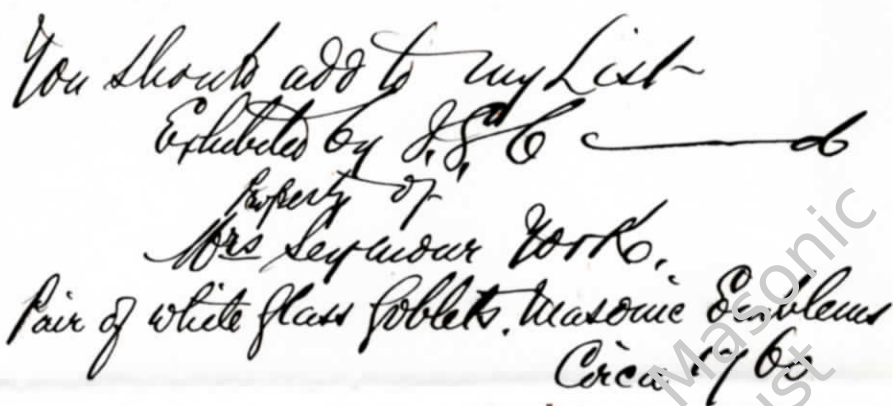 You should add to my List
Exhibited by J.S.C
Property of
Mrs Seymour York.
Pair of white glass goblets. Masonic Emblems
Circa 1760
Masonic
ust